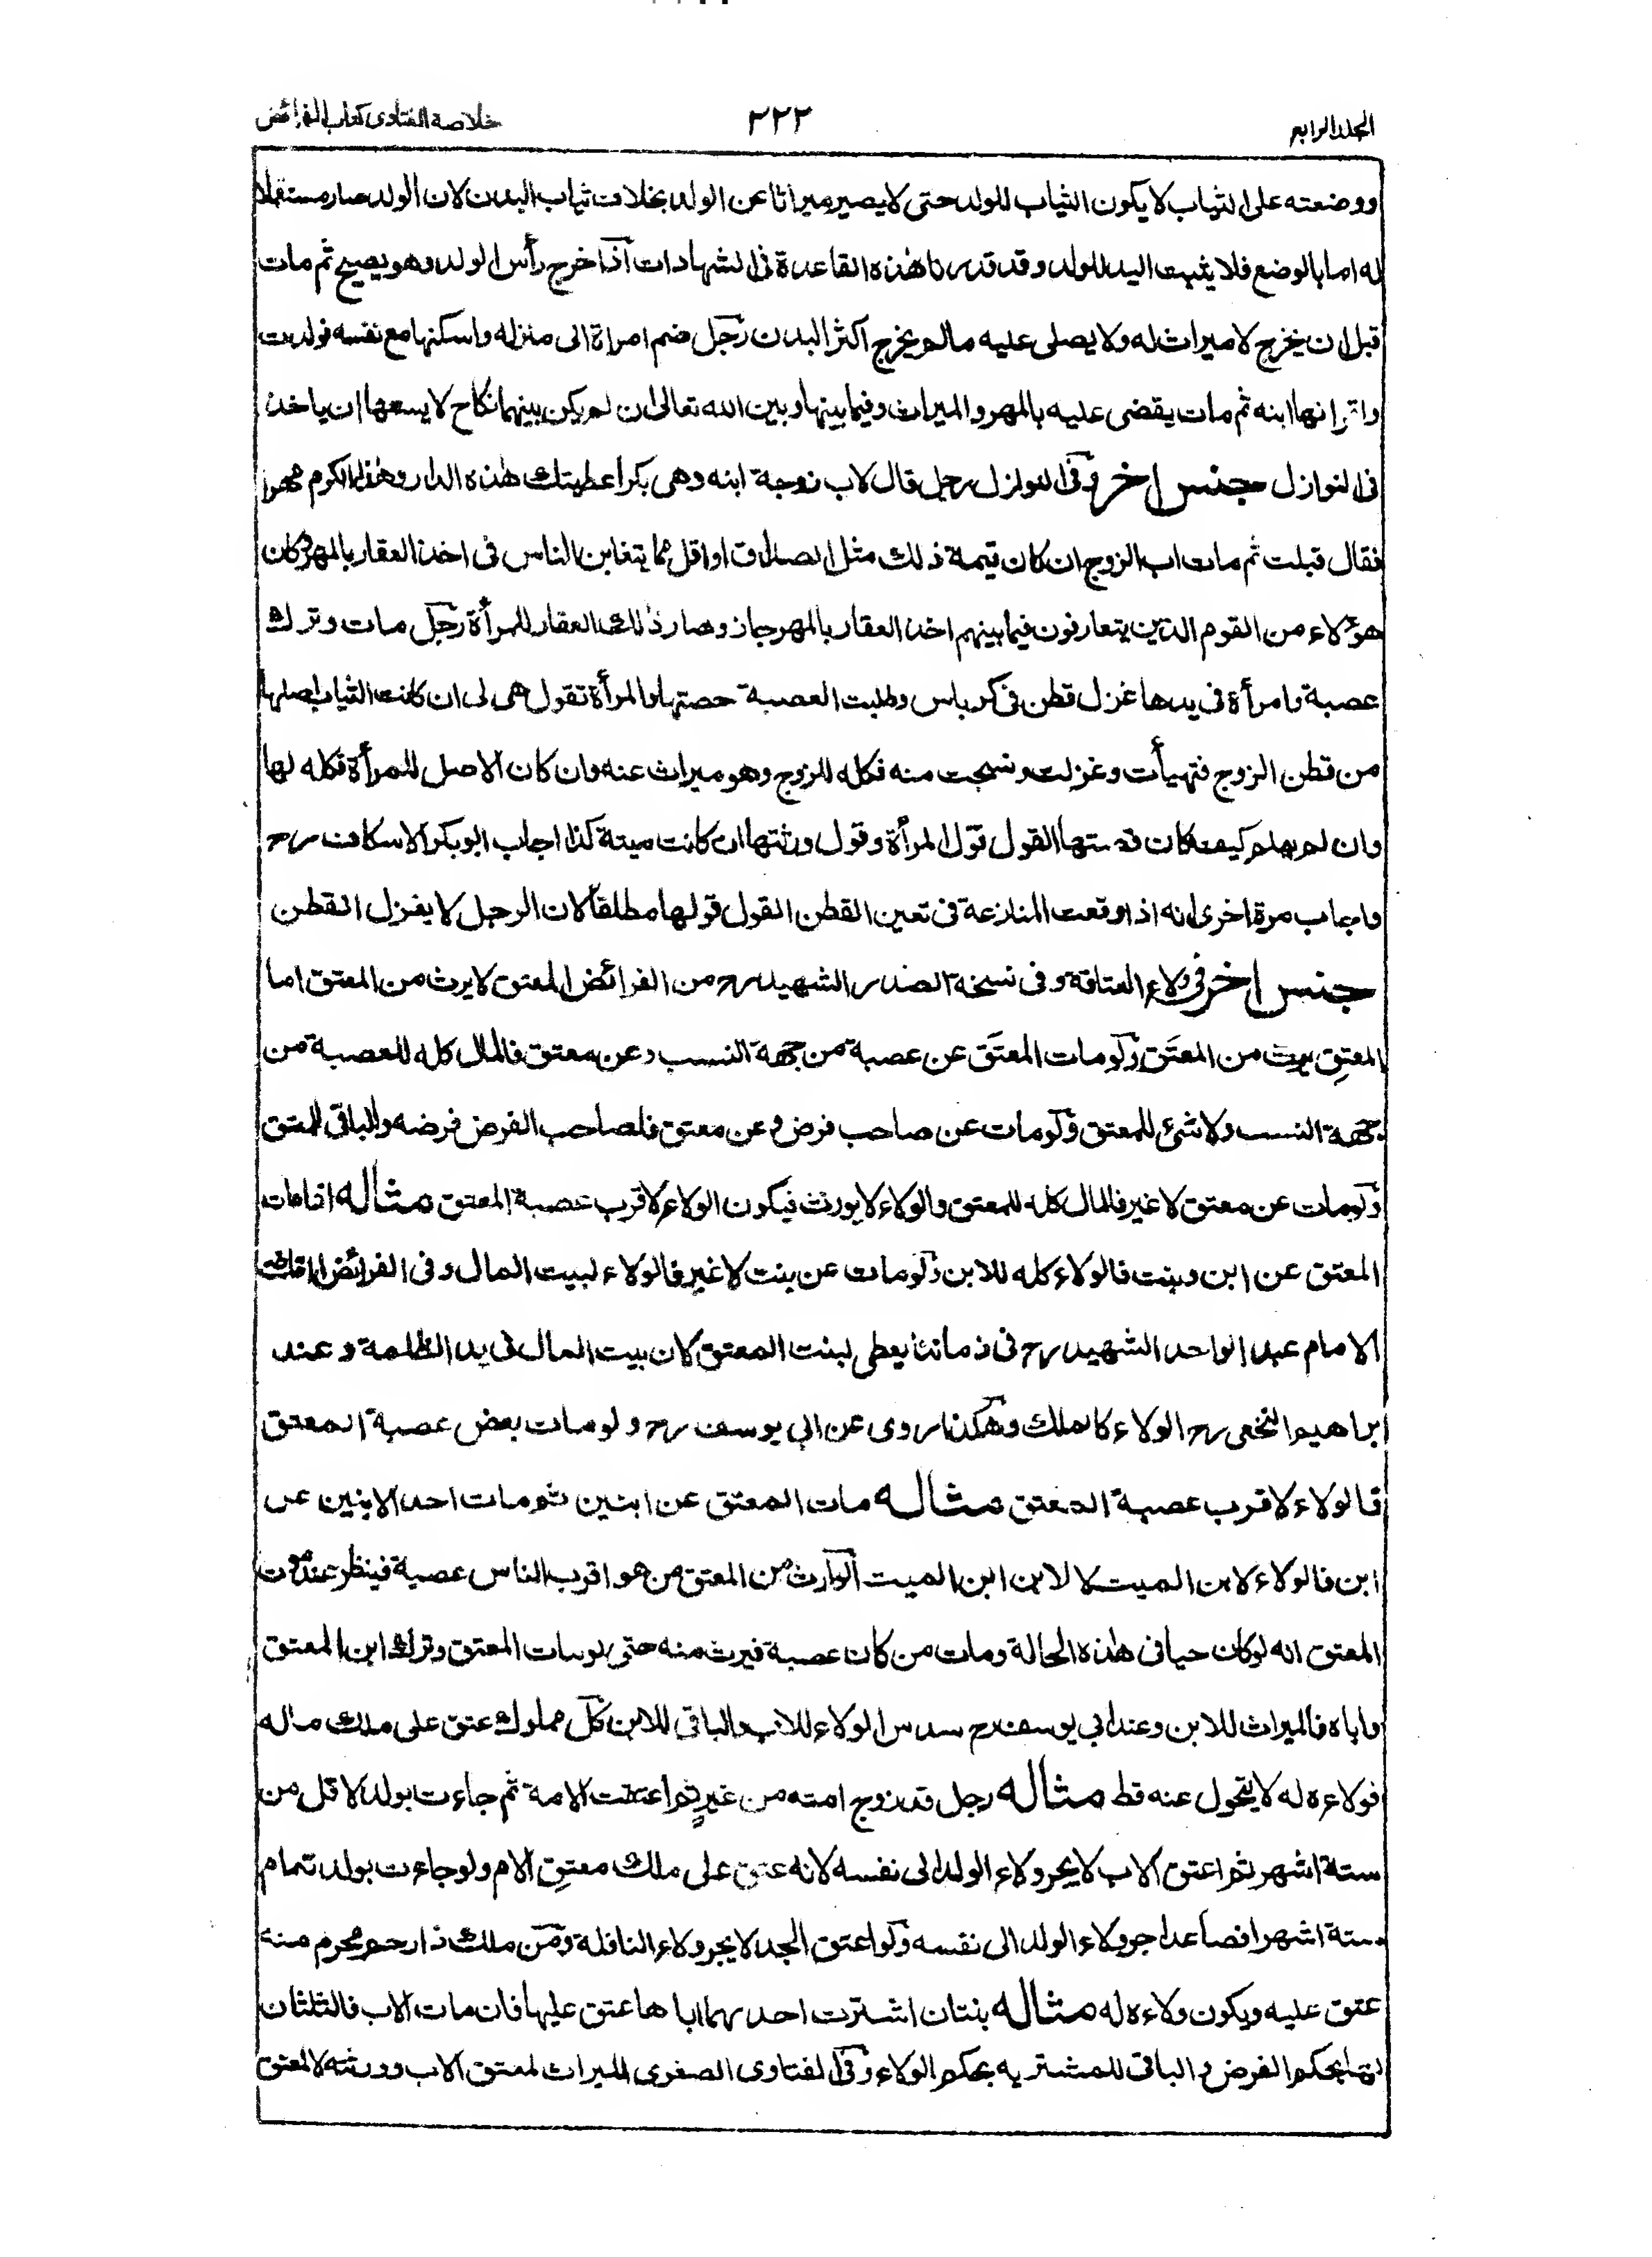 المجلد الرابع
٢٢٢
خلاصة الفتاوى كتاب الفرائض
ووضعته على الثياب لا يكون الثياب للولد حتى لا يصير ميراثا عن الولد بخلاف ثياب البدن لان الولد صار مستقلا
له اما بالوضع فلا يثبت اليد للولد وقد قدرنا هذه القاعدة فى الشهادات اذا خرج رأس الولد وهو يصيح ثم مات
قبل ان يخرج لا ميراث له ولا يصلى عليه مالم يخرج اكثر البدن رجل ضم امراة الى منزله واسكنها مع نفسه فولدت
واقر انها ابنه ثم مات يقضى عليه بالمهر والميراث وفيما بينها وبين الله تعالى ان لم يكن بينهما نكاح لا يسعها ان ياخذ
فى النوازل جنس اخر وفى النوازل رجل قال لاب زوجة ابنه وهى بكر اعطيتك هذه الدار وهذا الكرم مهرا
فقال قبلت ثم مات اب الزوج ان كان قيمة ذلك مثل الصداق او اقل مما يتغابن الناس فى اخذ العقار بالمهر وكان
هؤلاء من القوم الذين يتعارفون فيما بينهم اخذ العقار بالمهر جاز وصار ذلك العقار للمرأة رجل مات وترك
عصبة وامرأة فى يدها غزل قطن فى كرباس وطلبت العصبة حصتها والمرأة تقول هى لى ان كانت الثياب اصلها
من قطن الزوج فتهيأت وغزلت ونسجت منه فكله للزوج وهو ميراث عنه وان كان الاصل للمرأة فكله لها
وان لم يعلم كيف كان القول قول المرأة وقول ورثتها ان كانت ميتة كذا اجاب ابو بكر الاسكاف رح
واجاب مرة اخرى انه اذا وقعت المنازعة فى تعين القطن القول قولها مطلقا لان الرجل لا يغزل القطن
جنس اخر فى ولاء العتاقة وفى نسخة الصدر الشهيد رح من الفرائض المعتق لا يرث من المعتق اما
المعتِق يرث من المعتَق ولو مات المعتَق عن عصبة من جهة النسب وعن معتق فالمال كله للعصبة من
جهة النسب ولا شئ للمعتق ولو مات عن صاحب فرض وعن معتق فلصاحب الفرض فرضه والباقى للمعتق
ولو مات عن معتق لا غير فالمال كله للمعتق والولاء لا يورث فيكون الولاء لاقرب عصبة المعتق مثاله اذا مات
المعتق عن ابن وبنت فالولاء كله للابن ولو مات عن بنت لا غير فالولاء لبيت المال وفى الفرائض
الامام عبد الواحد الشهيد رح فى زماننا يعطى لبنت المعتق لان بيت المال فى يد الظلمة وعند
ابراهيم النخعى رح الولاء كالملك وهكذا روى عن ابى يوسف رح ولو مات بعض عصبة المعتق
فالولاء لاقرب عصبة المعتق مثاله مات المعتق عن ابنين ثم مات احد الابنين عن
ابن فالولاء لابن الميت لا لابن ابن الميت الوارث من المعتق من هو اقرب الناس عصبة فينظر عند موت
المعتق انه لو كان حيا فى هذه الحالة ومات من كان عصبة فيرث منه حتى لو مات المعتق وترك ابن المعتق
واباه فالميراث للابن وعند ابى يوسف رح سدس الولاء للاب والباقى للابن كل مملوك عتق على ملك ماله
فولاءه له لا يتحول عنه قط مثاله رجل قد زوج امته من غيره ثم اعتقت الامة ثم جاءت بولد لاقل من
ستة اشهر ثم اعتق الاب لا يجر ولاء الولد الى نفسه لانه عتق على ملك معتِق الام ولو جاءت بولد تمام
ستة اشهر فصاعدا جر ولاء الولد الى نفسه ولو اعتق الجد لا يجر ولاء النافلة ومن ملك ذا رحم محرم منه
عتق عليه ويكون ولاءه له مثاله بنتان اشترت احدهما اباها عتق عليها فان مات الاب فالثلثان
لهما بحكم الفرض والباقى للمشترية بحكم الولاء وفى الفتاوى الصغرى الميراث لمعتق الاب وورثته لا لمعتق